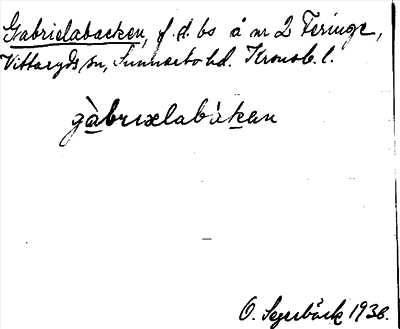 Gabrielabacken, f. d. bs å nr 2 Feringe,
Vittaryds sn, Sunnerbo hd. Kronob. l.
gàbrıxlabàkan
O. Segerbäck 1936.